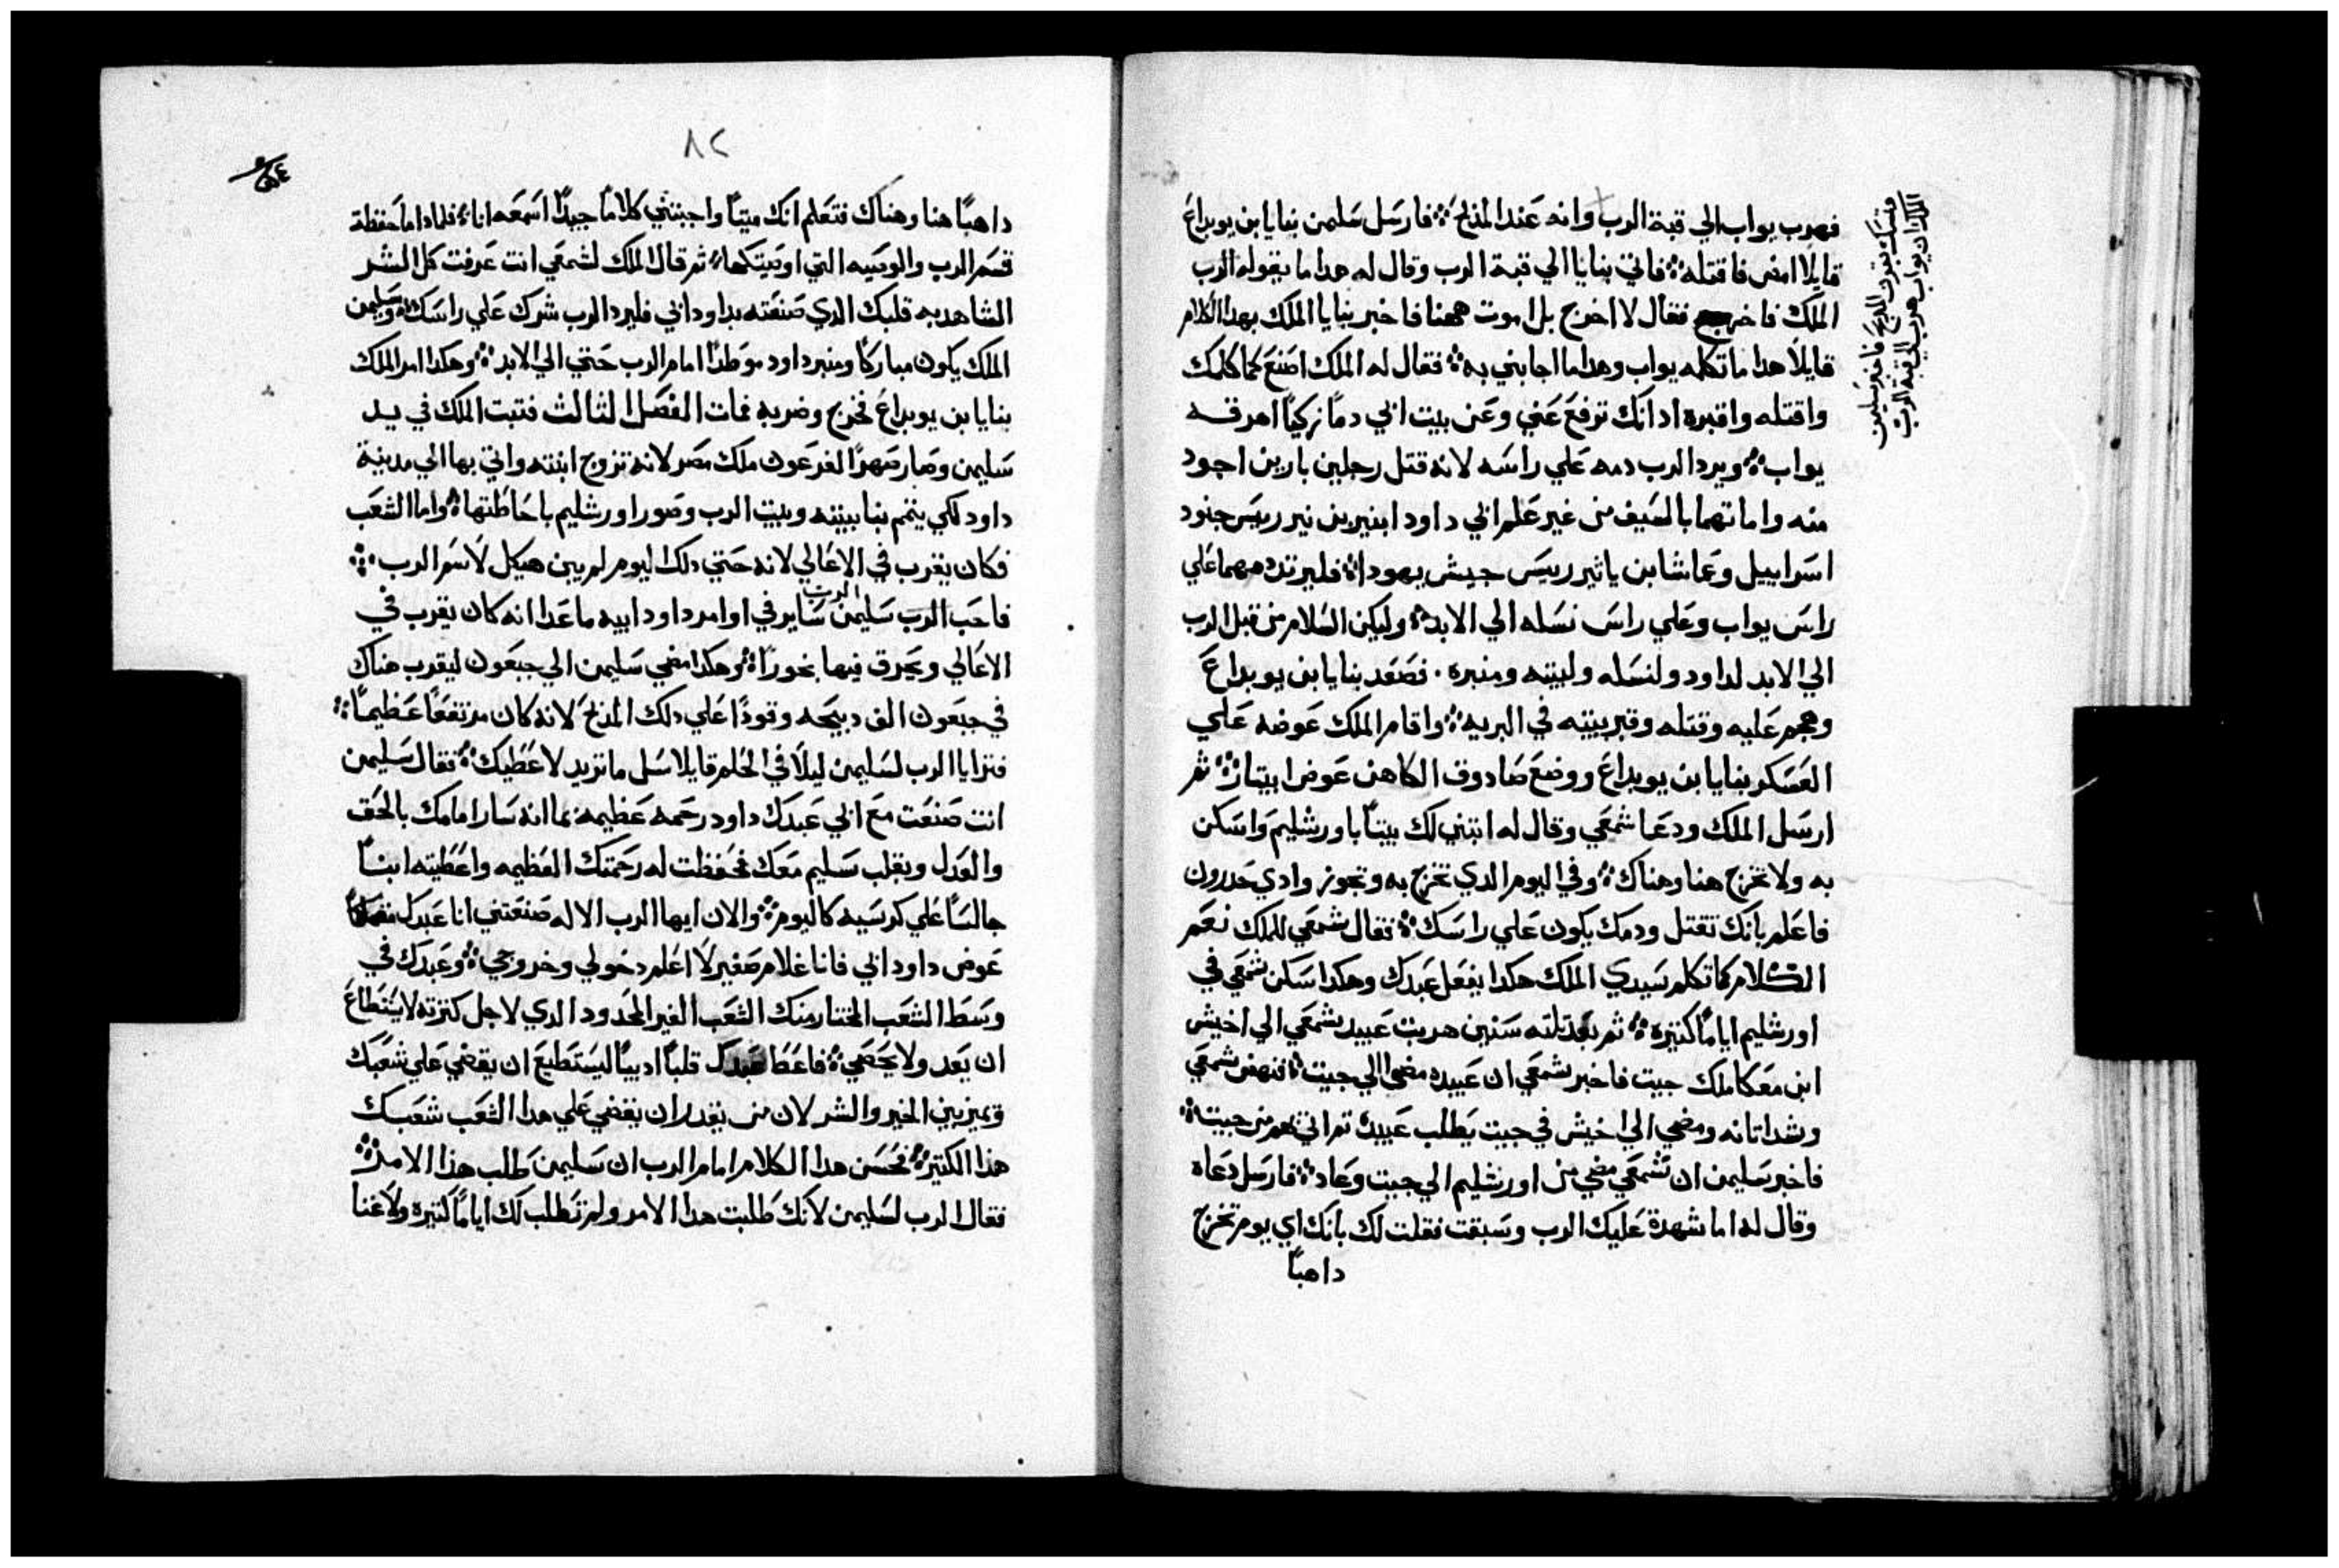 فهرب يواب الي قبة الرب وانه عند المذبح ܀ فارسل سليمن بنايا ابن يوبداع
قايلا امض فاقتله ܀ فاتي بنايا الي قبة الرب وقال له هدا ما يقوله الرب
الملك فاخرج فقال لا اخرج بل اموت ههنا فاخبر بنايا الملك بهدا الكلام
قايلا هدا ما تكلم يواب وهدا ما اجابني به ܀ فقال له الملك اصنع كما كلمك
واقتله واقبره ادانك ترفع عني وعن بيت ابي دماً زكياً اهرقه
يواب ܀ ويرد الرب دمه علي راسه لانه قتل رجلين بارين اجود
منه واماتهما بالسيف من غير علم ابي داود ابنير بن نير رييس جنود
اسراييل وعاشا بن ياثير رييس جيش يهودا ܀ فليرتد دمهما علي
راس يواب وعلي راس نسله الي الابد ܀ وليكن السلام من قبل الرب
الي الابد لداود ولنسله ولبيته ومنبره . فصعد بنايا بن يوبداع
وهجم عليه وقتله وقبر ببيته في البريه ܀ واقام الملك عوضه علي
العسكر بنايا بن يوبداع ووضع صادوق الكاهن عوض ابيتار ܀ ثم
ارسل الملك ودعا شمعي وقال له ابتني لك بيتاً باورشليم واسكن
به ولا تخرج هنا وهناك ܀ وفي اليوم الدي تخرج به وتجوز وادي حدرون
فاعلم بانك تقتل ودمك يكون علي راسك ܀ فقال شمعي للملك نعم
الكلام كما تكلم سيدي الملك هكدا يفعل عبدك وهكدا سكن شمعي في
اورشليم اياماً كتيره ܀ ثم بعد تلته سنين هربت عبيد شمعي الي اخيش
ابن معكا ملك جيت فاخبر شمعي ان عبيده مضوا الي جيت ܀ فنهض شمعي
وشد اتانه ومضي الي اخيش في جيت يطلب عبيده تم اتي بهم من جيت ܀
فاخبر سليمن ان شمعي مضي من اورشليم الي جيت وعاد ܀ فارسل دعاه
وقال له اما شهدة عليك الرب وسبقت فقلت لك بانك اي يوم تخرج
داهباً
الملك ان يواب هرب الي قبة الرب
ومسك بقرن المذبح فاخبر سليمن
٨٢
داهباً هنا وهناك فتعلم انك ميتاً واجبتني كلاماً جيداً اسمعه انا ܀ فلمادا ما حفظة
قسم الرب والوصيه التي اوصيتكها ܀ ثم قال الملك لشمعي انت عرفت كل الشر
الشاهد به قلبك الدي صنعته بداود ابي فليرد الرب شرك علي راسك ܀ وسليمن
الملك يكون مباركاً ومنبر داود موطداً امام الرب حتي الي الابد ܀ وهكدا امر الملك
بنايا بن يوبداع فخرج وضربه فمات الفصل الثالث فتبت الملك في يد
سليمن وصار صهراً لفرعون ملك مصر لانه تزوج ابنته واتي بها الي مدينة
داود لكي يتمم بنا بيته وبيت الرب وصور اورشليم باحاطتها ܀ واما الشعب
فكان يقرب في الاعالي لانه حتي دلك اليوم لم يبن هيكل لاسم الرب ܀
فاحب الرب سليمن ساير في اوامر داود ابيه ما عدا انه كان يقرب في
الاعالي ويحرق فيها بخوراً ܀ وهكدا مضي سليمن الي جبعون ليقرب هناك
في جبعون الف دبيحه وقوداً علي دلك المذبح لانه كان مرتفعاً عظيماً ܀
فترايا الرب لسليمن ليلاً في الحلم قايلا سل ما تريد لاعطيك ܀ فقال سليمن
انت صنعت مع ابي عبدك داود رحمه عظيمه بما انه سار امامك بالحق
والعدل وبقلب سليم معك فحفظت له رحمتك العظيمه واعطيته ابناً
جالساً علي كرسيه كاليوم ܀ والان ايها الرب الاله صنعتني انا عبدك
عوض داود ابي فانا غلام صغير لا اعلم دخولي وخروجي ܀ وعبدك في
وسط الشعب المختار منك الشعب الغير المحدود الدي لاجل كترته لا يستطاع
ان يعد ولا يحصي ܀ فاعط عبدك قلباً ادبياً ليستطيع ان يقضي علي شعبك
ويميز بين الخير والشر لان من يقدر ان يقضي علي هدا الشعب شعبك
هذا الكتير ܀ فحسن هدا الكلام امام الرب ان سليمن طلب هذا الامر ܀
فقال الرب لسليمن لانك طلبت هدا الامر ولم تطلب لك اياماً كتيره ولا غنا